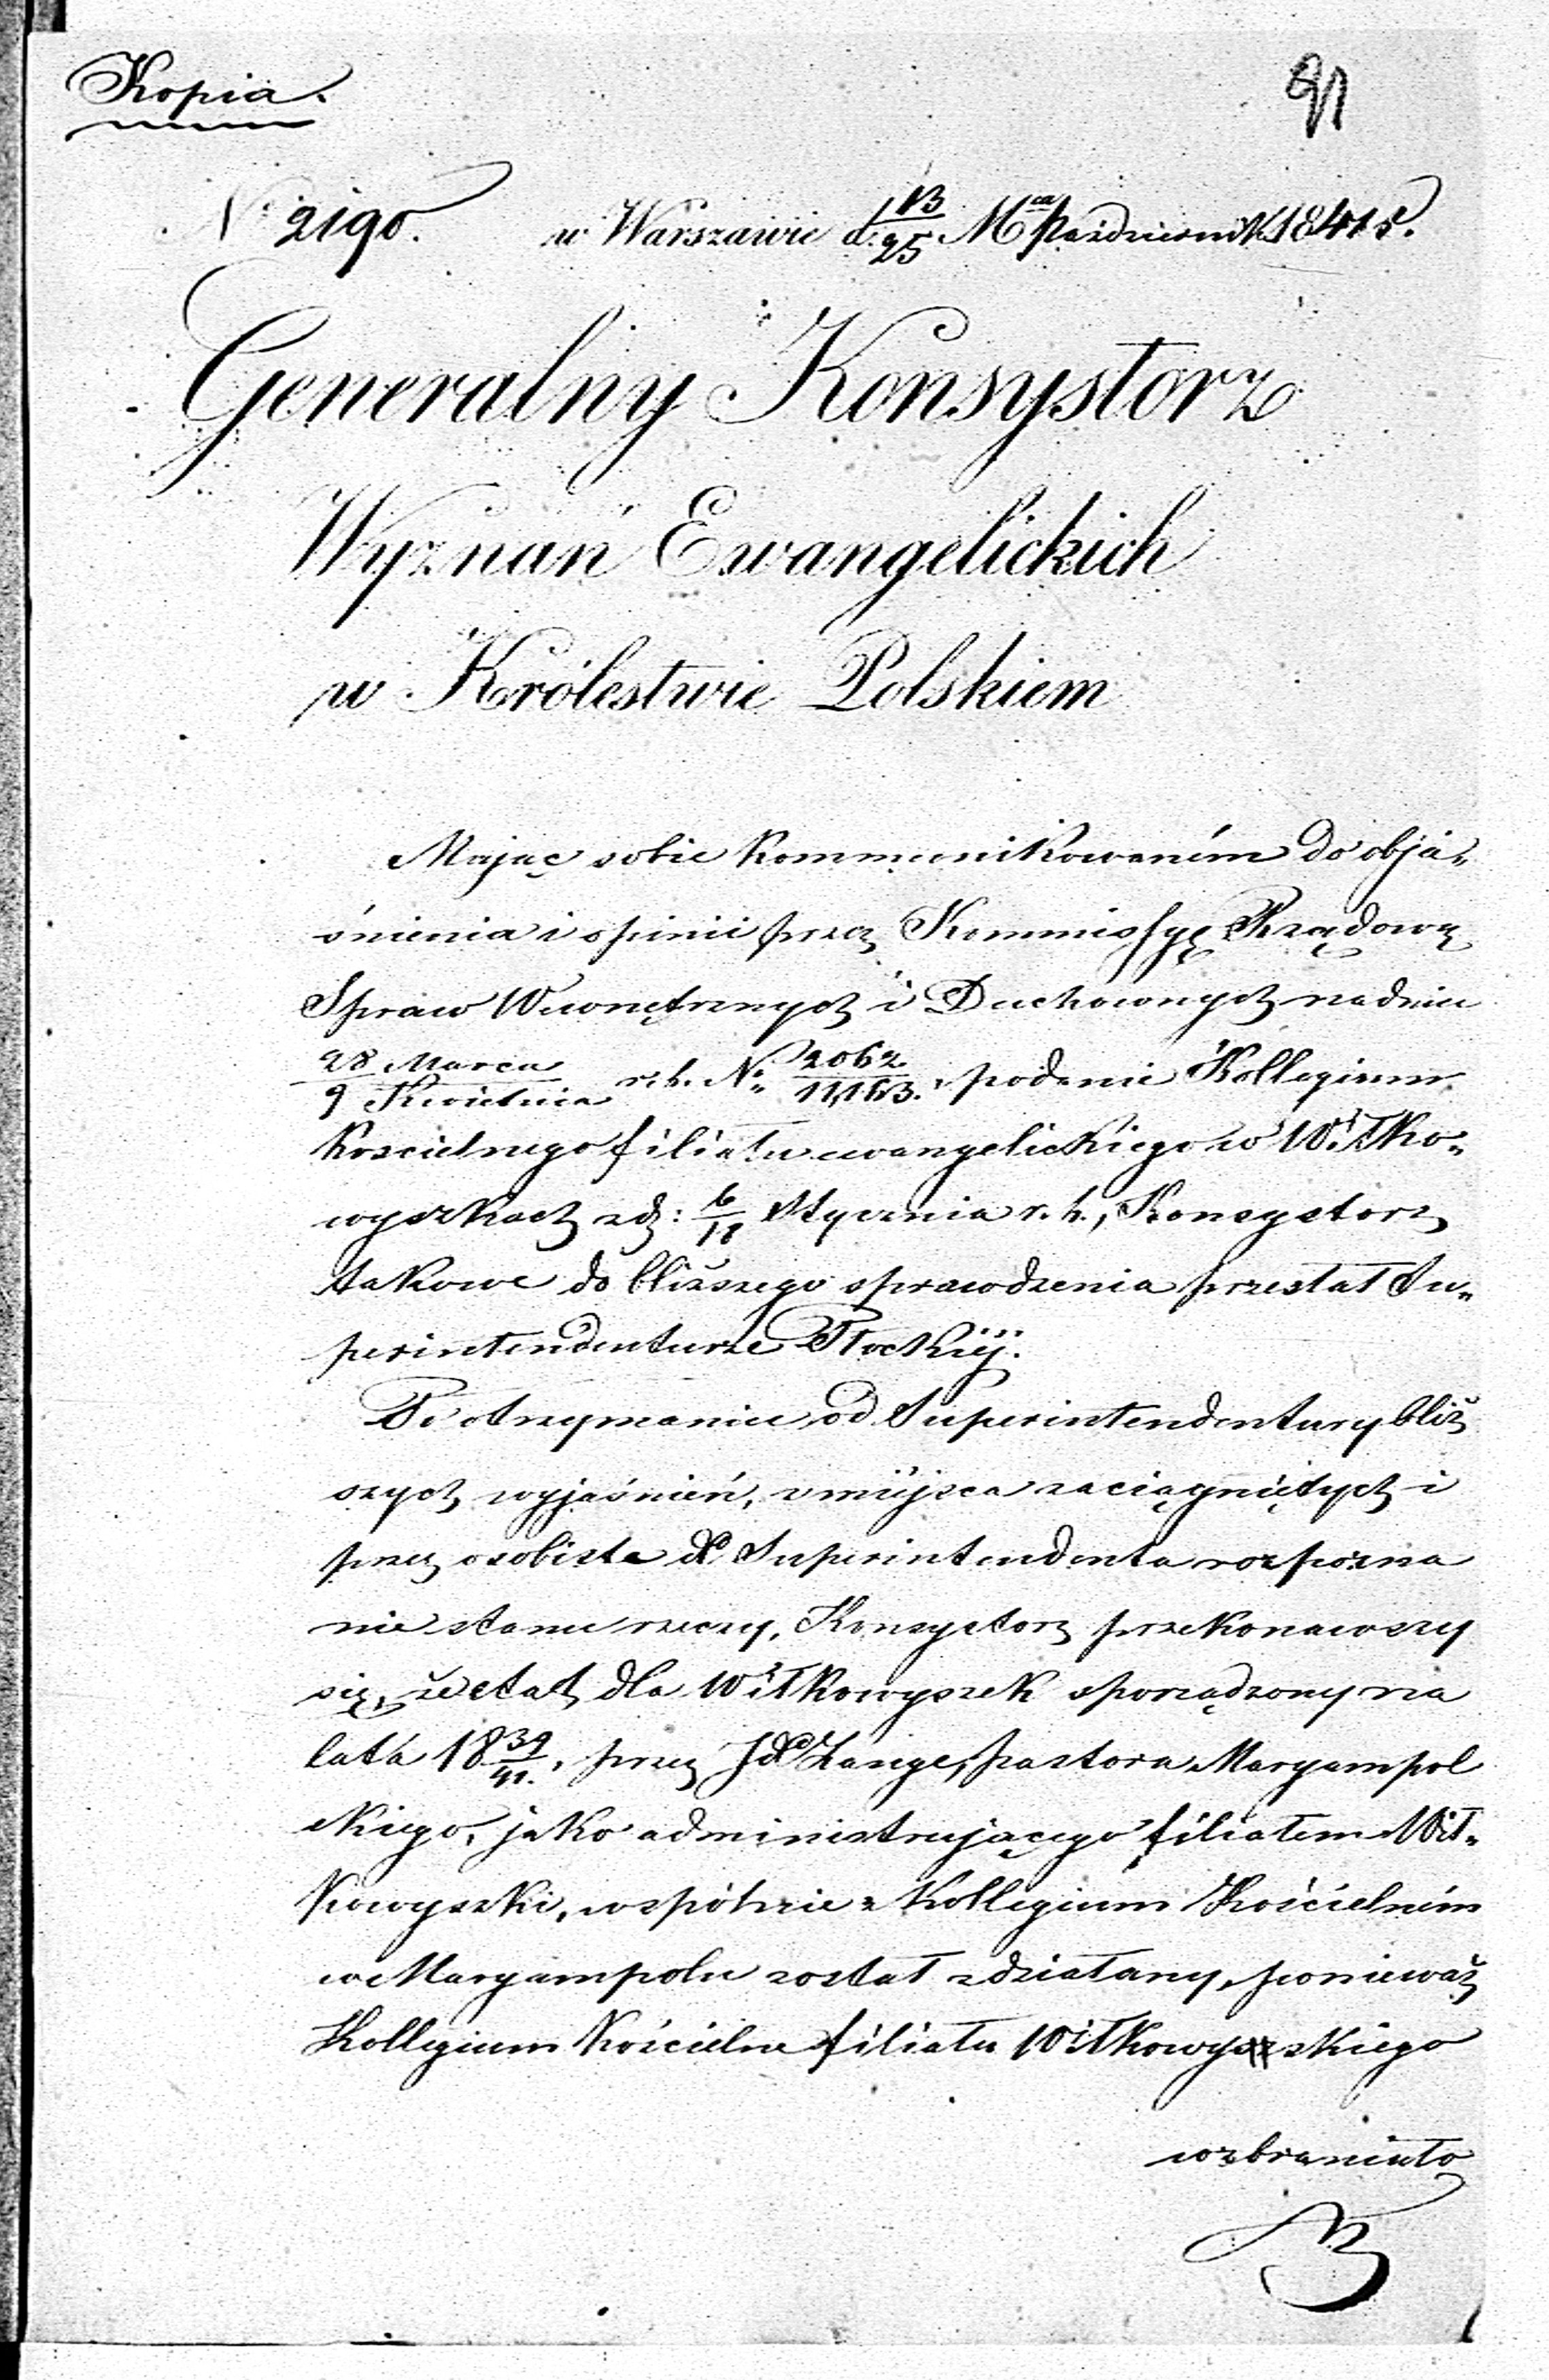 Kopia.
91
N. 2190. w Warszawie d. 13/25 Mca Październik 1841 r.
Generalny Konsystorz
Wyznań Ewangelickich
w Królestwie Polskiem
Mając sobie kommunikowaném do obja„
śnienia i opinii przez Kommissyę Rządową
Spraw Wewnętrznych i Duchownych na dniu
28 Marca/9 Kwietnia r. b. No 2062/11,163. podanie Kollegium
kościelnego filiału ewangelickiego w Wiłko„
wyszkach z d: 6/18 Stycznia r. b., Konsystorz
takowe do bliższego sprawdzenia przesłał Su„
perintendenturze Płockiéj.
Po otrzymaniu od Superintendentury bliż
szych wyjaśnień, z miejsca zaciągniętych i
przez osobiste Xa Superintendenta rozpozna
nie stanu rzeczy, Konsystorz przekonawszy
się, że etat dla Wiłkowyszek sporządzony na
lata 18 39/41. przez JXa Lange, pastora Maryampol
skiego, jako administrującego filiałem Wił„
kowyszki, wspólnie z Kollegium Kościelném
w Maryampolu został zdziałany, ponieważ
Kollegium Kościelne filiału Wiłkowyskiego
wzbraniało